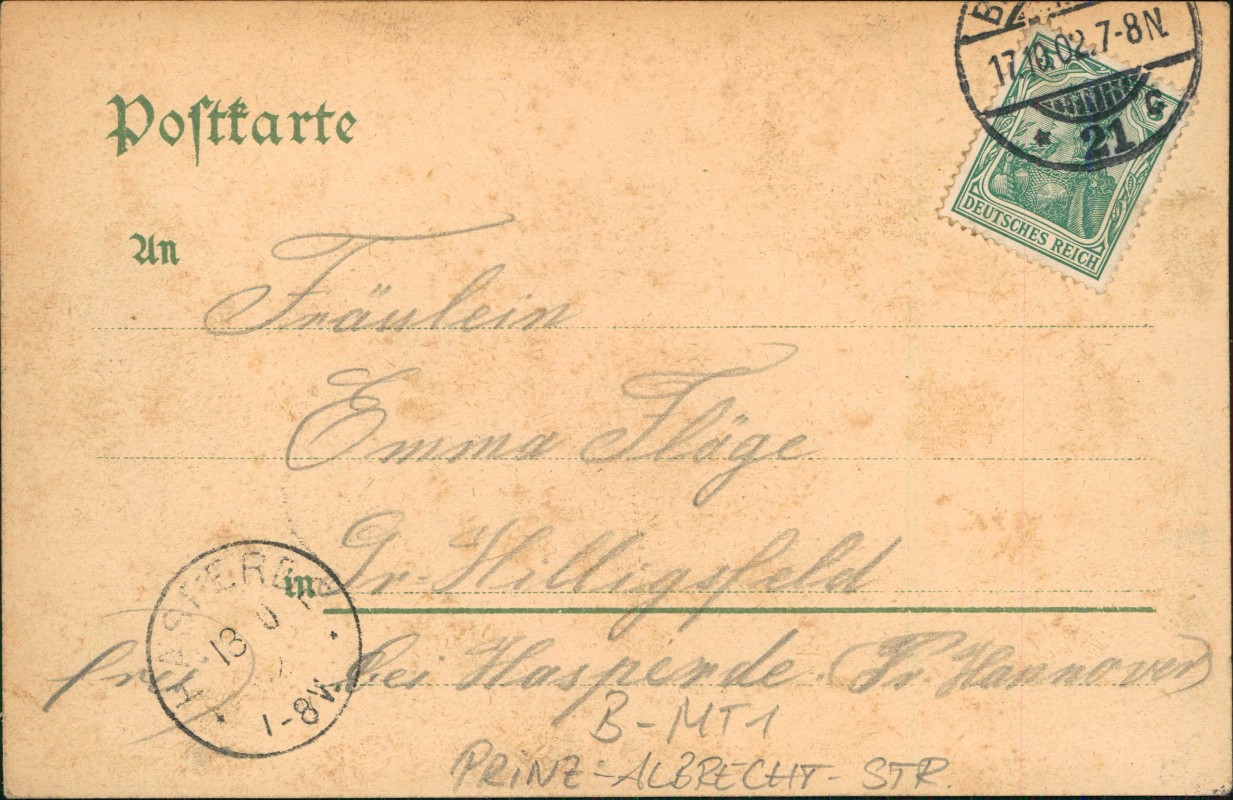 Postkarte
17.10.02. 7-8N.
* 21 G
DEUTSCHES REICH
An
Fräulein
Emma Flöge
in Gr. Hilligsfeld
frei bei Hasperde (Pr. Hannover)
HASPERDE
18
1-8V.
B-MT1
PRINZ-ALBRECHT-STR.